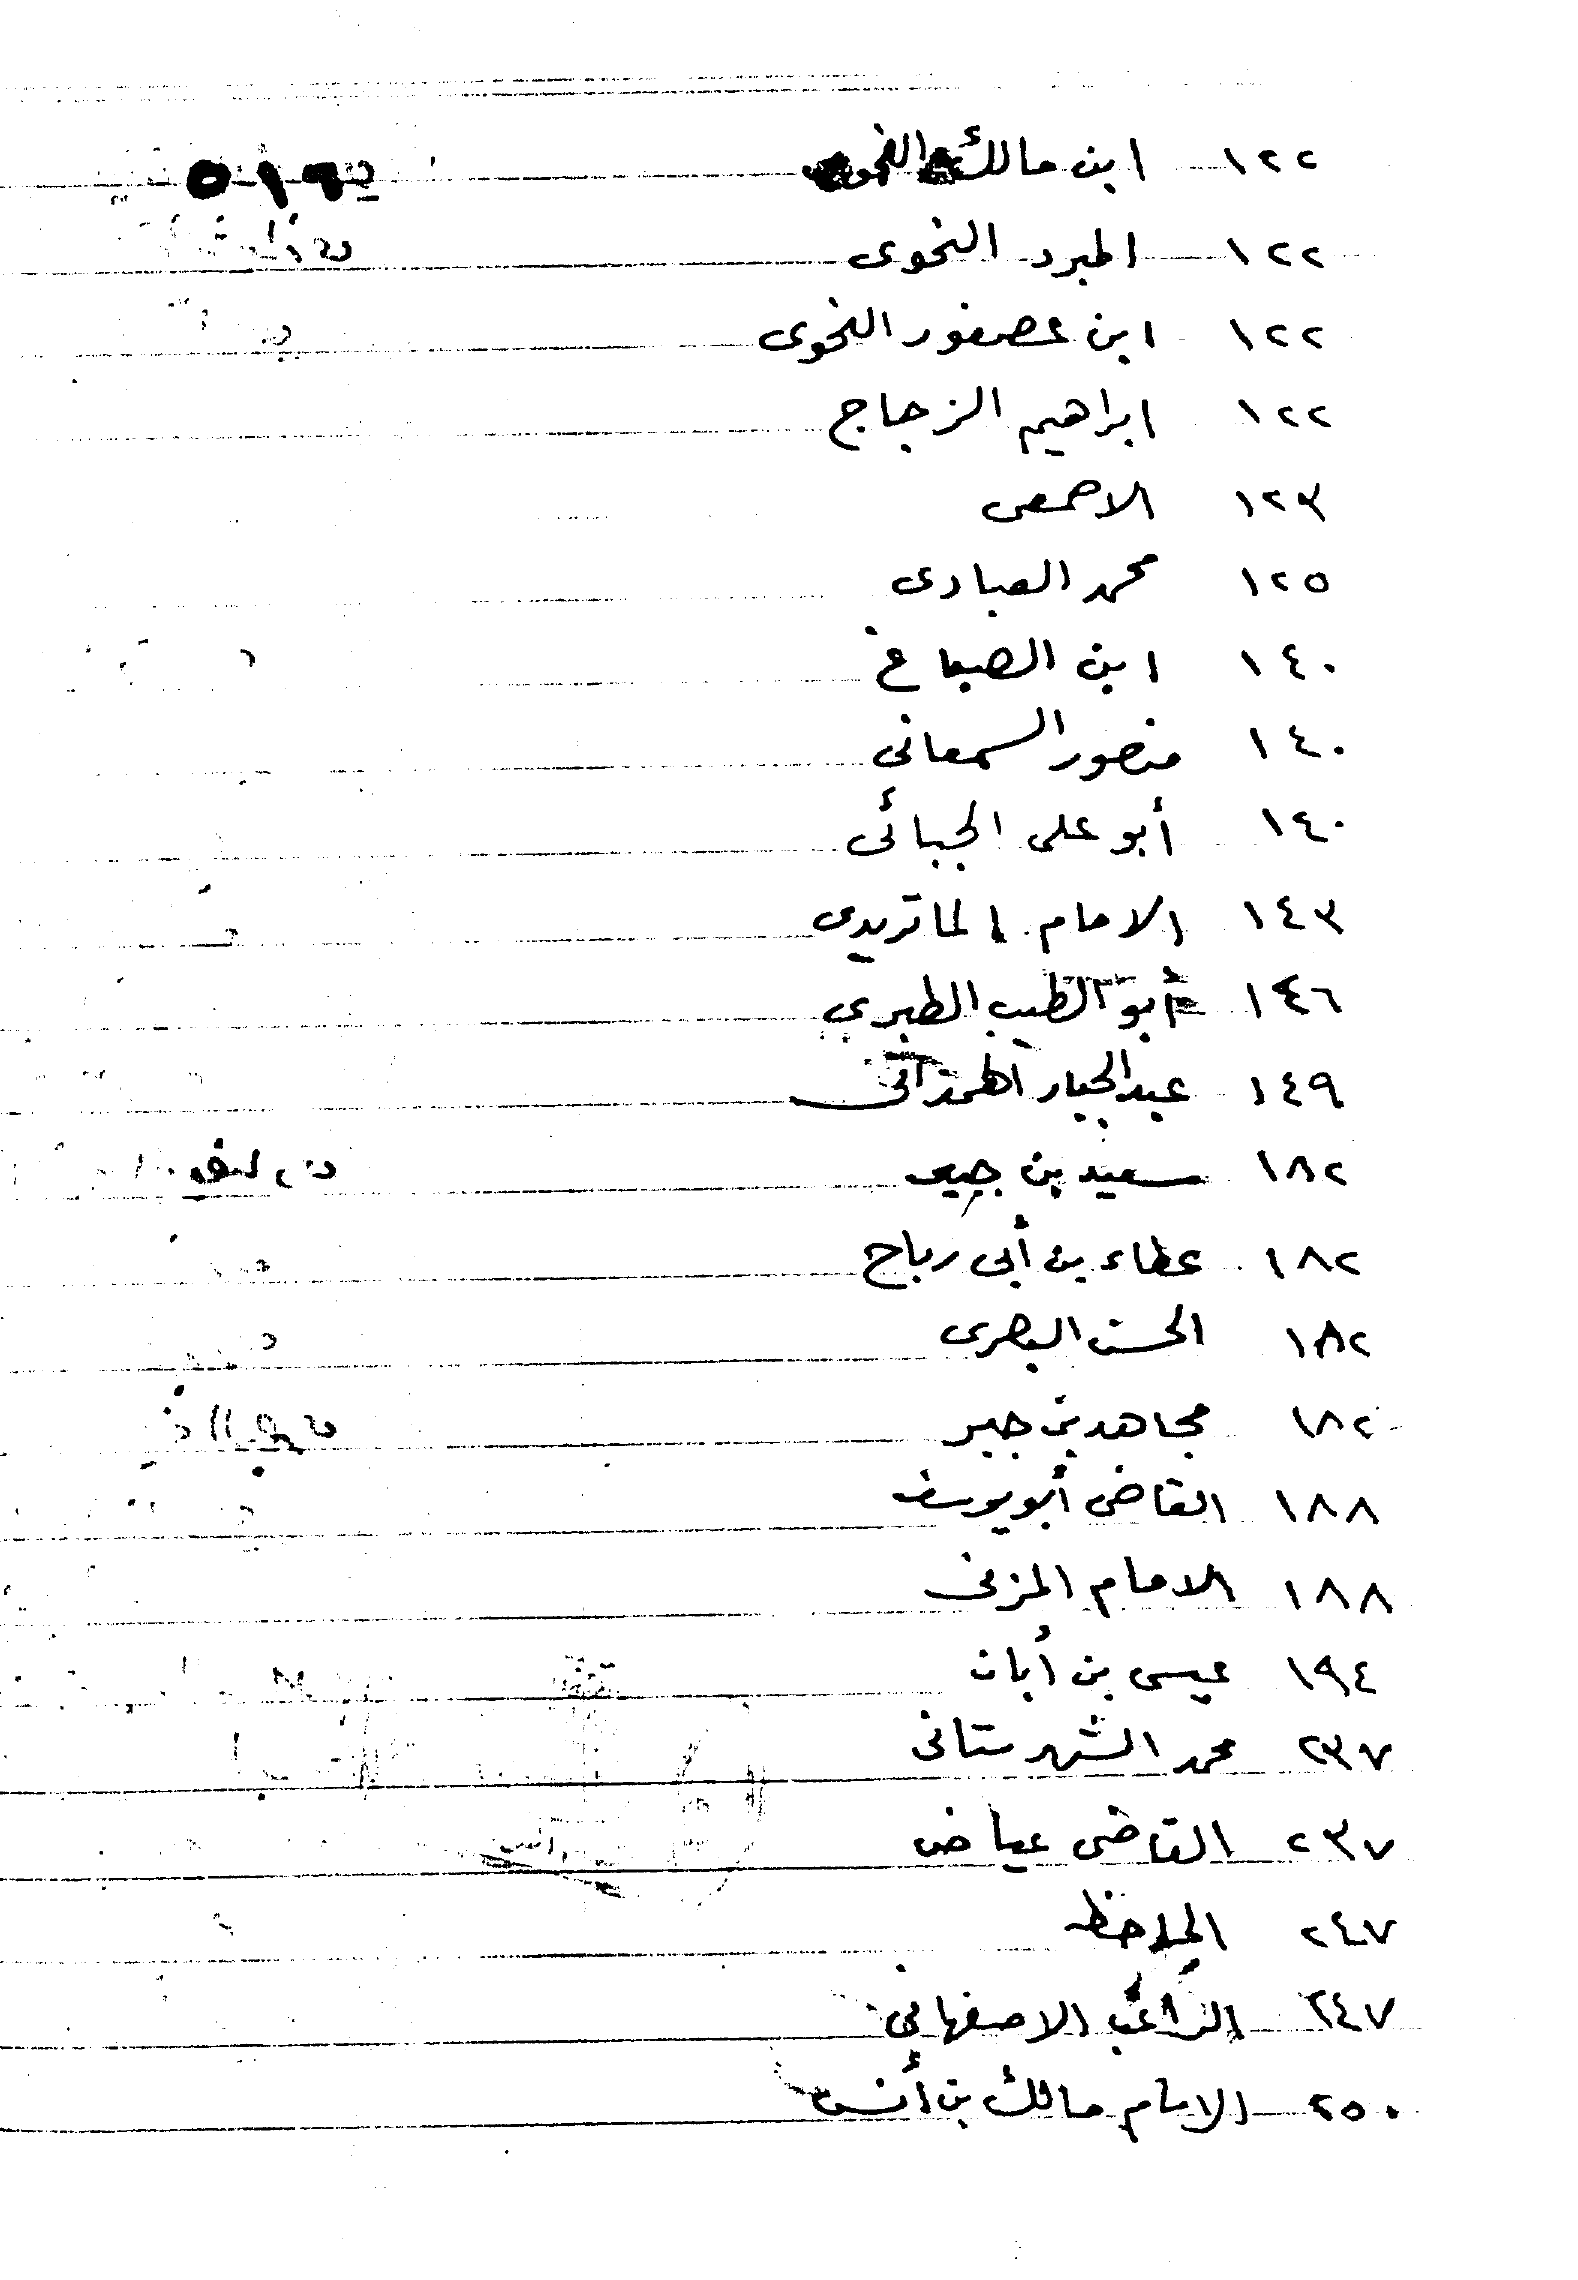 ١٢٢ ابن مالك النحوى ٥١٦
١٢٢ المبرد النحوى
١٢٢ ابن عصفور النحوى
١٢٢ ابراهيم الزجاج
١٢٣ الاصمعى
١٢٥ محمد العبادى
١٤٠ ابن الصباغ
١٤٠ منصور السمعانى
١٤٠ أبو على الجبائى
١٤٣ الامام الماتريدى
١٤٦ أبو الطيب الطبرى
١٤٩ عبد الجبار الهمذانى
١٨٢ سعيد بن جبير
١٨٢ عطاء بن أبى رباح
١٨٢ الحسن البصرى
١٨٢ مجاهد بن جبر
١٨٨ القاضى أبو يوسف
١٨٨ الامام المزنى
١٩٤ عيسى بن أبان
٢٣٧ محمد الشهرستانى
٢٣٧ القاضى عياض
٢٤٧ الجاحظ
٢٤٧ الراغب الاصفهانى
٢٥٠ الامام مالك بن أنس